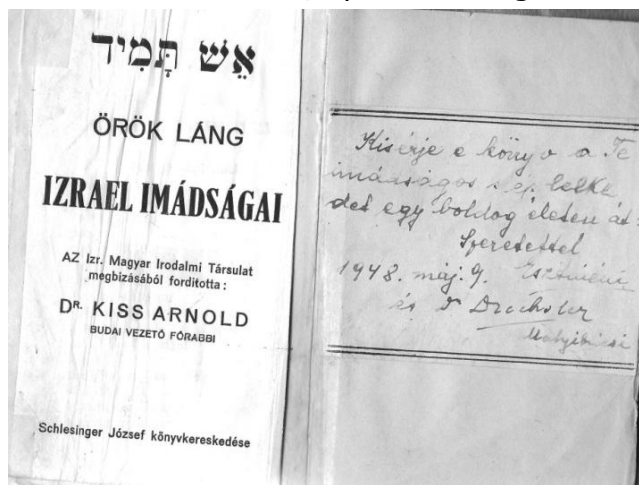 אֵשׁ תָּמִיד
ÖRÖK LÁNG
IZRAEL IMÁDSÁGAI
AZ Izr. Magyar Irodalmi Társulat
megbizásából forditotta:
DR. KISS ARNOLD
BUDAI VEZETŐ FŐRABBI
Schlesinger József könyvkereskedése
Kisérje e könyv a Te
imádságos szép lelke
det egy boldog életen át.
Szeretettel
1948. máj. 9.
és Dr Drechsler